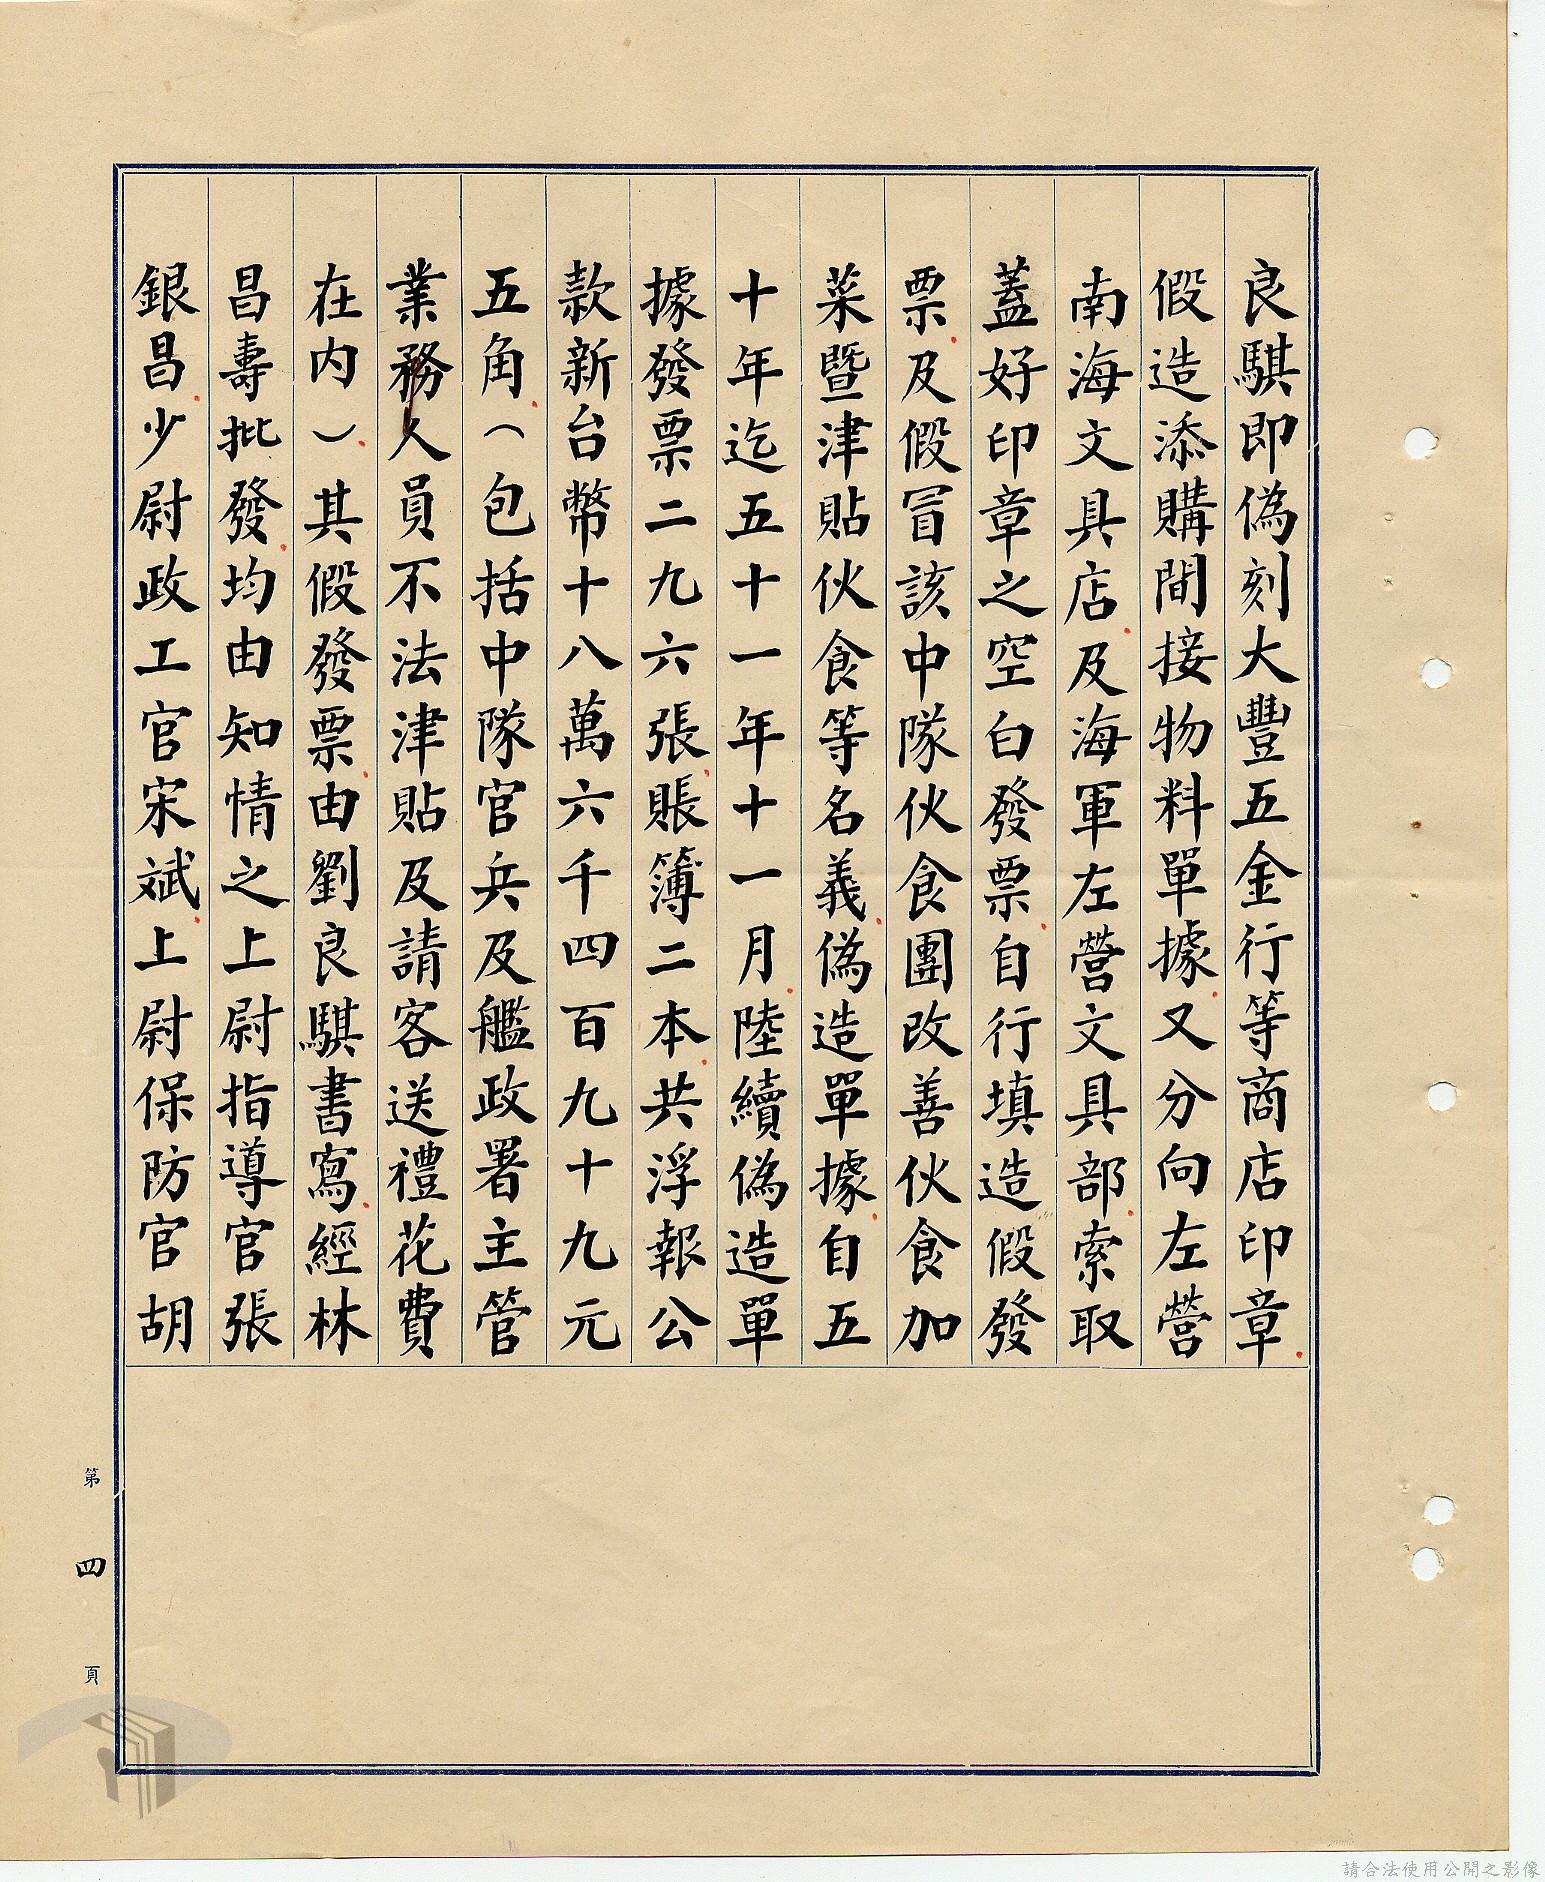 良騏即偽刻大豐五金行等商店印章
假造添購間接物料單據又分向左營
南海文具店及海軍左營文具部索取
蓋好印章之空白發票自行填造假發
票及假冒該中隊伙食團改善伙食加
菜暨津貼伙食等名義偽造單據自五
十年迄五十一年十一月陸續偽造單
據發票二九六張賬簿二本共浮報公
款新台幣十八萬六千四百九十九元
五角（包括中隊官兵及艦政署主管
業務人員不法津貼及請客送禮花費
在內）其假發票由劉良騏書寫經林
昌壽批發均由知情之上尉指導官張
銀昌少尉政工官宋斌上尉保防官胡
第四頁
請合法使用公開之影像